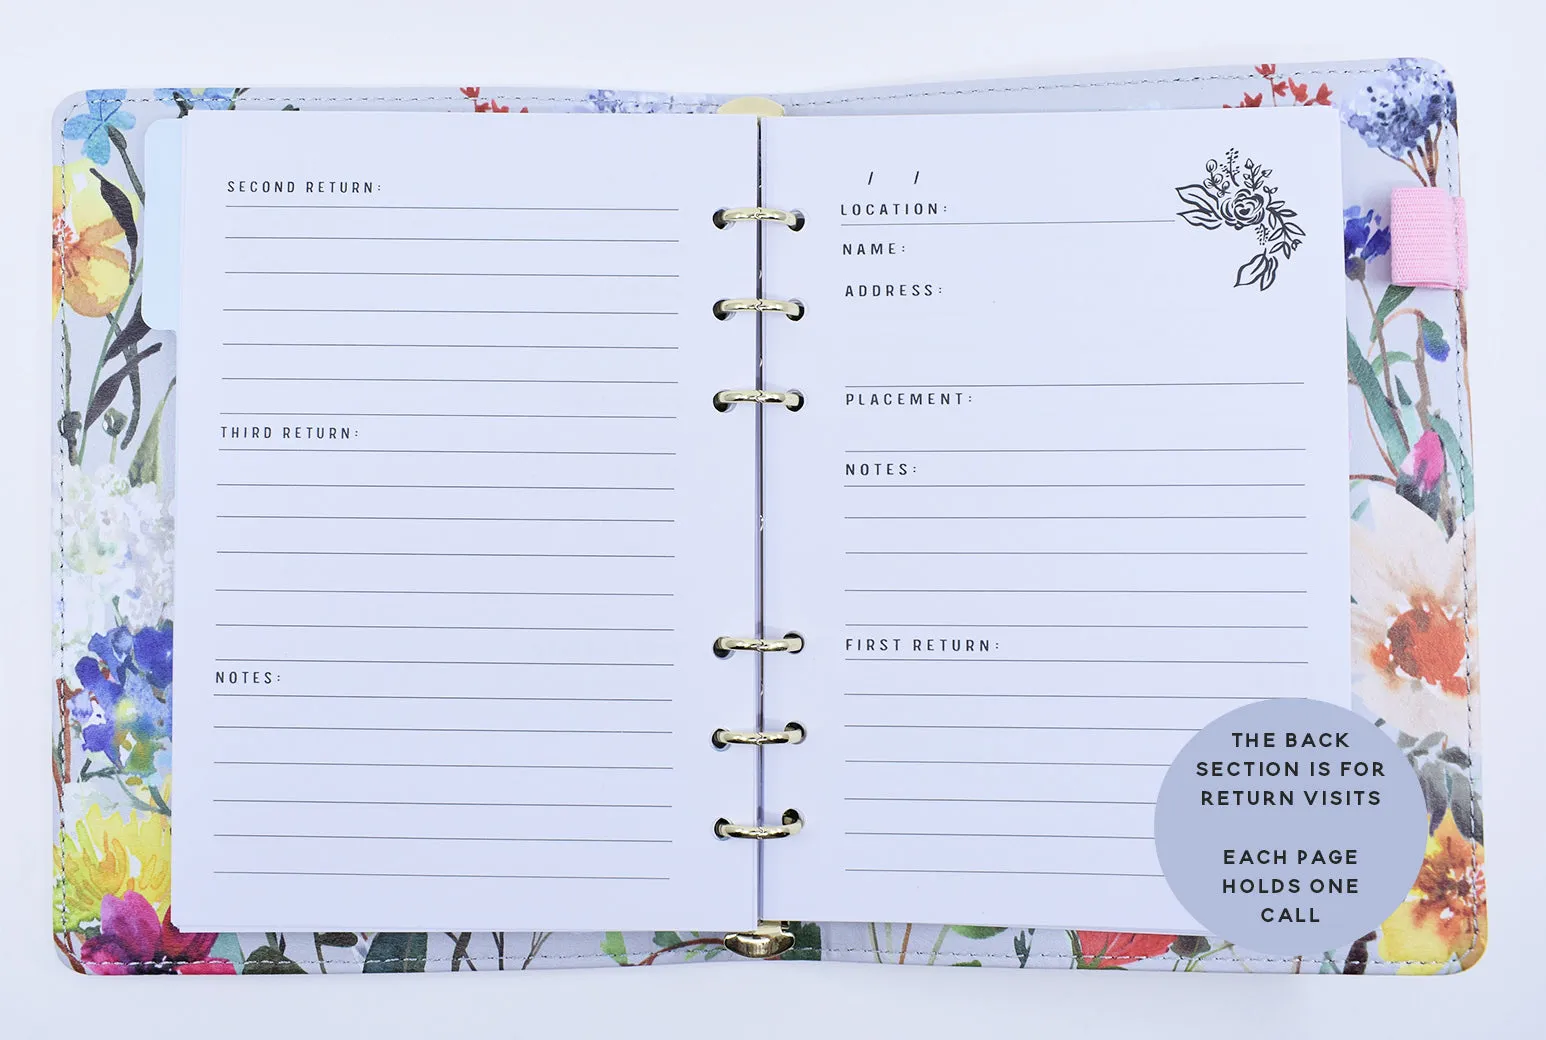 SECOND RETURN:
THIRD RETURN:
NOTES:
/ /
LOCATION:
NAME:
ADDRESS:
PLACEMENT:
NOTES:
FIRST RETURN:
THE BACK
SECTION IS FOR
RETURN VISITS
EACH PAGE
HOLDS ONE
CALL